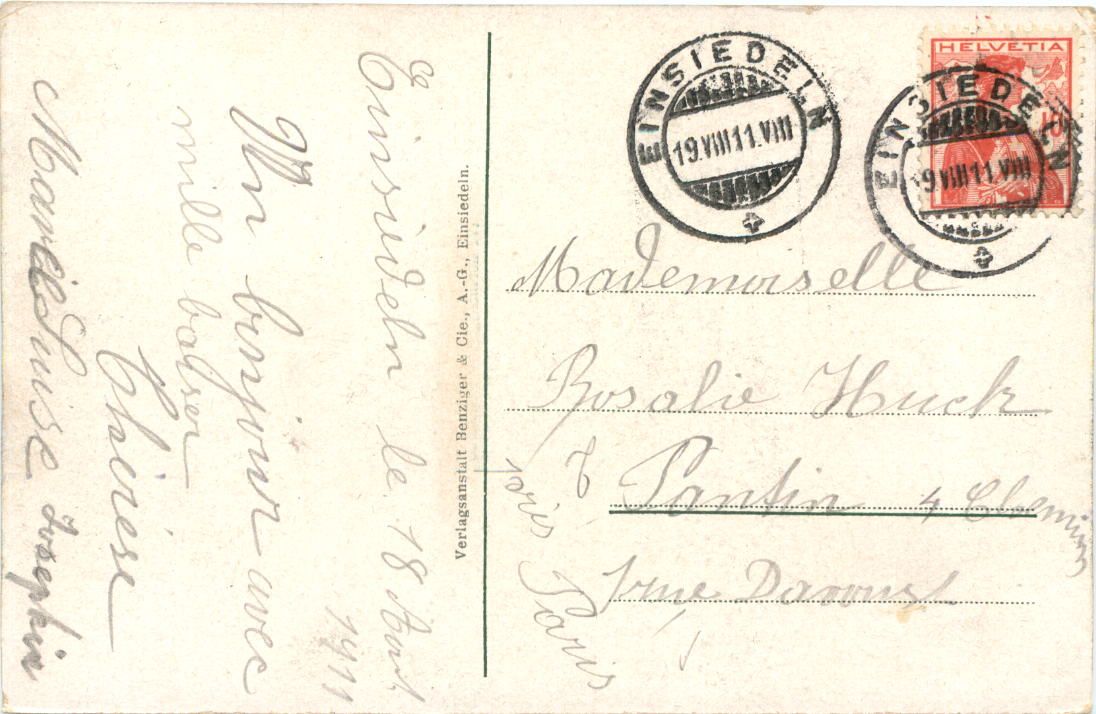 Einsiedeln le 18 Aout
1911
Un bonjour avec
mille baiser
Thérèse
Marie Luise Josephin
Verlagsanstalt Benziger & Cie., A.-G., Einsiedeln.
EINSIEDELN
19.VIII11.VIII
HELVETIA
10
EINSIEDELN
19.VIII11.VIII
Mademoiselle
Rosalie Huck
Pantin 4 Chemins
1 rue Davoust
près Paris